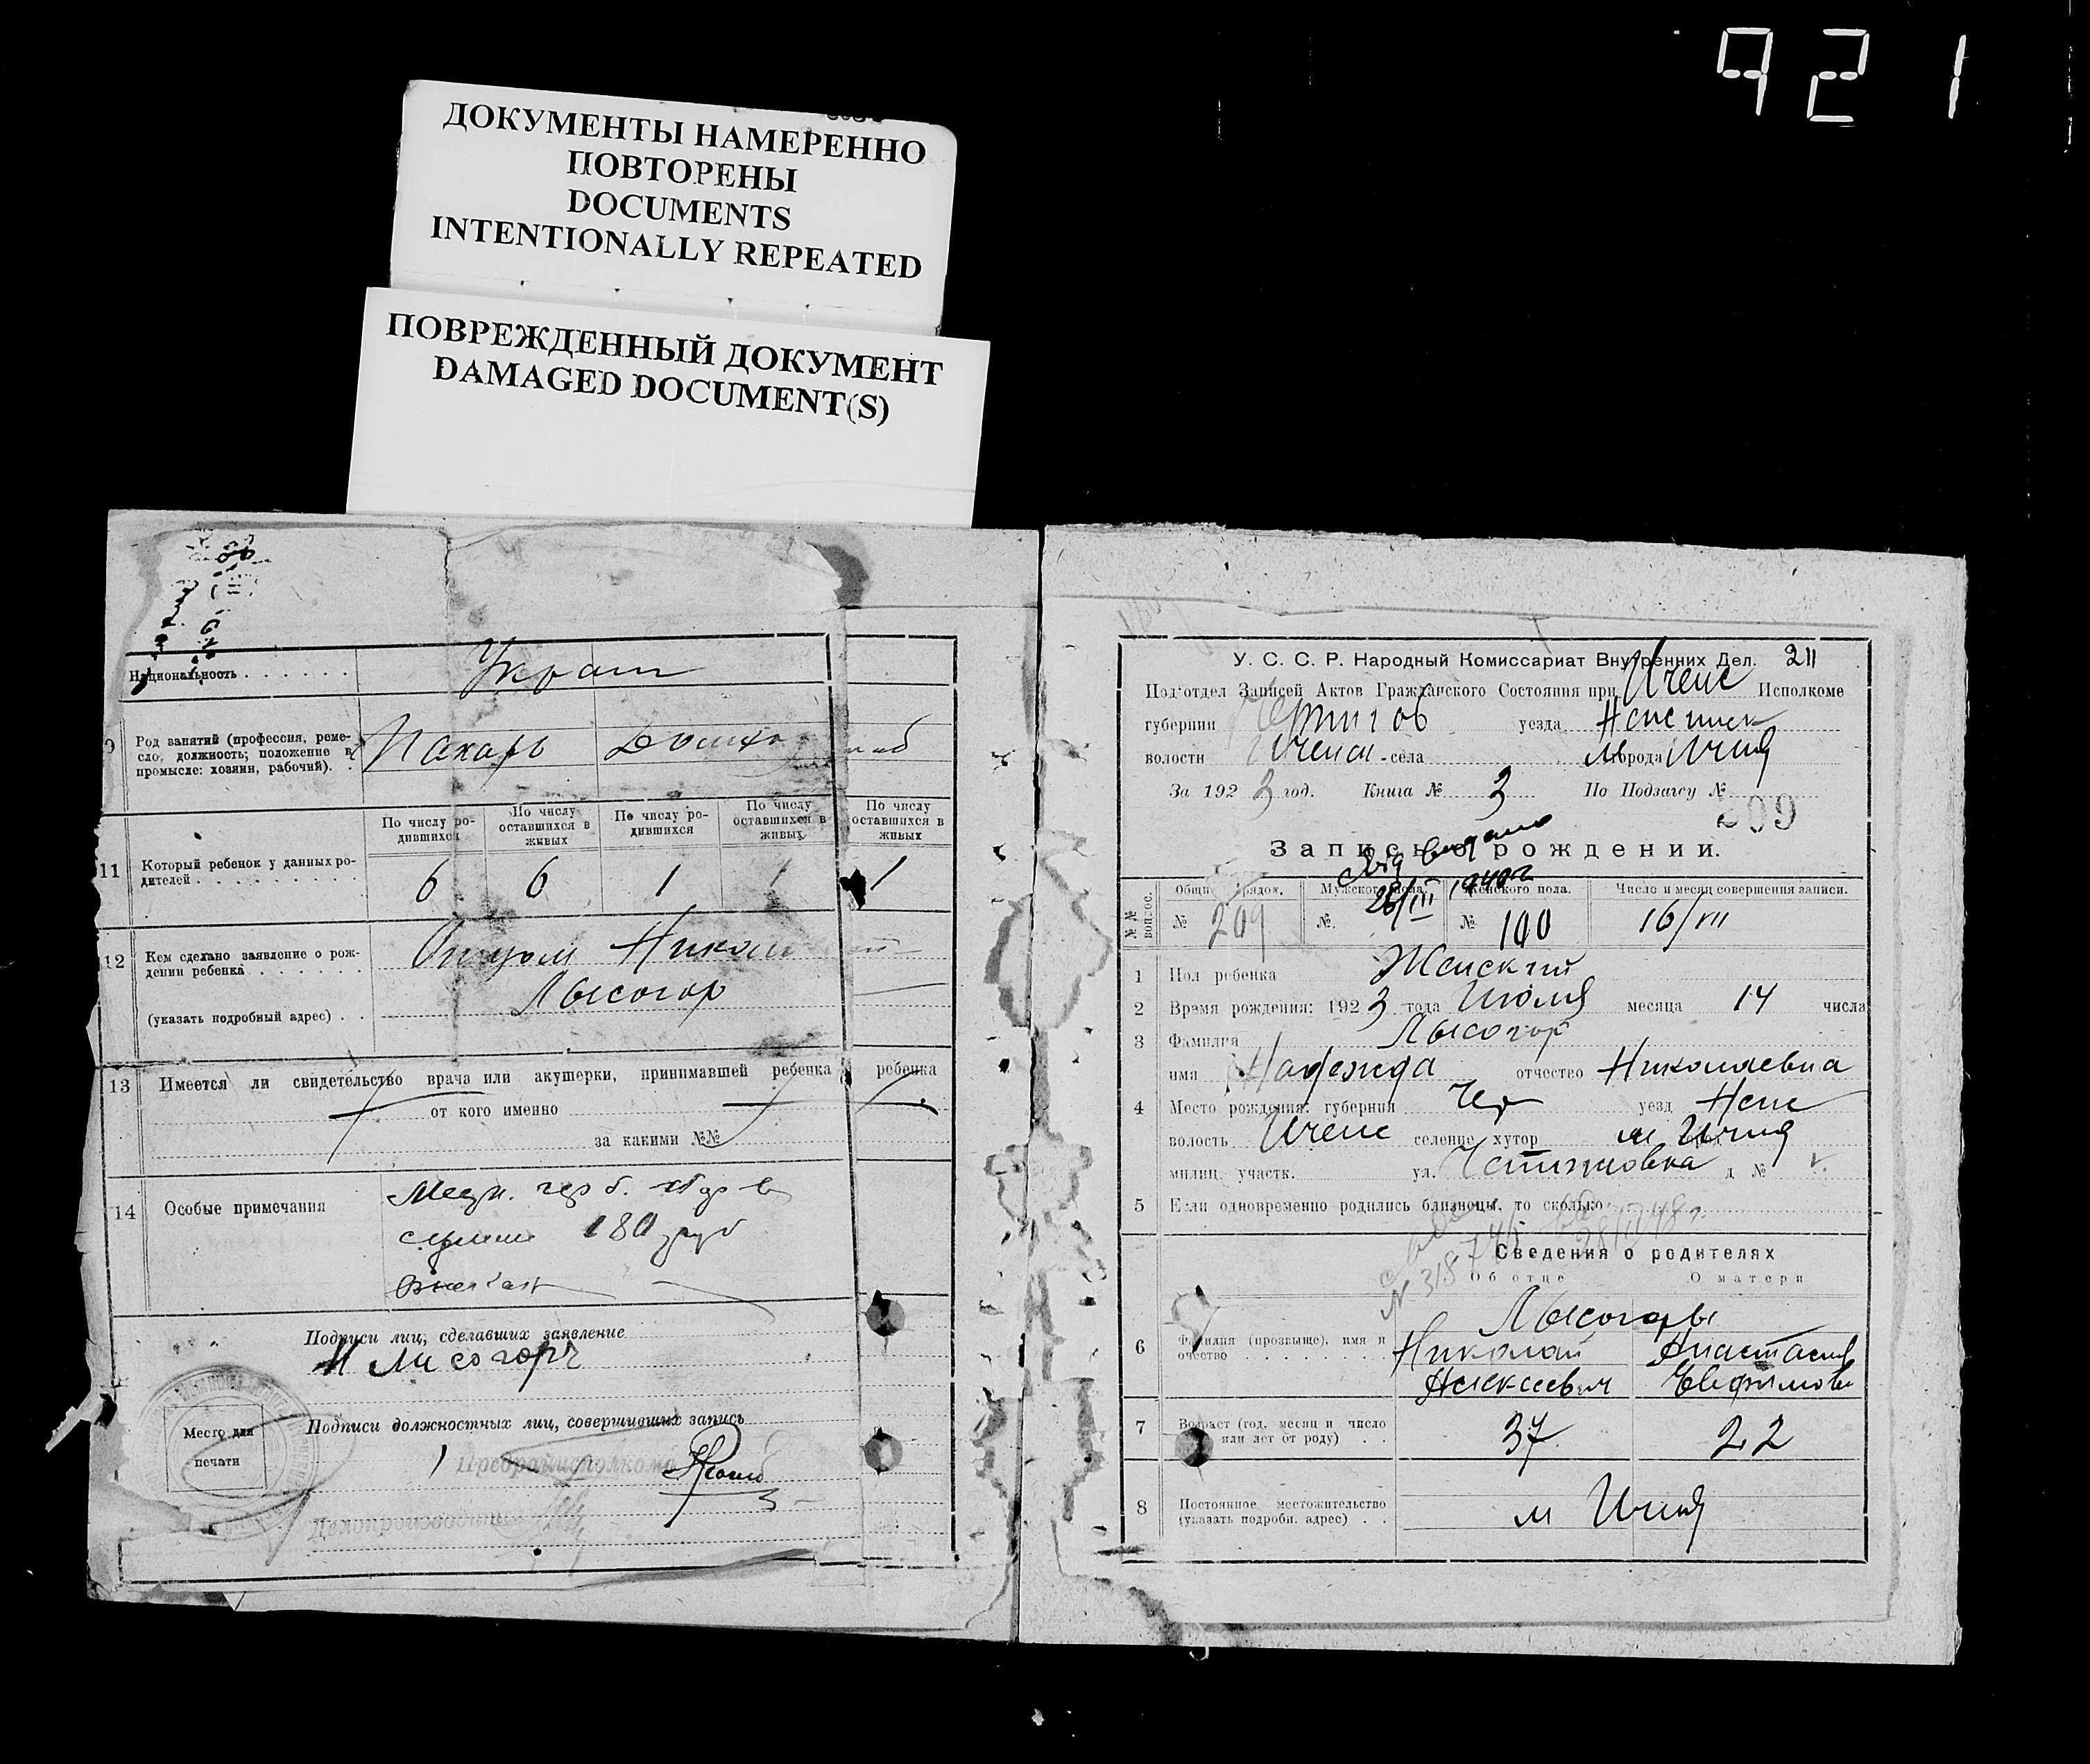 921
ДОКУМЕНТЫ НАМЕРЕННО
ПОВТОРЕНЫ
DOCUMENTS
INTENTIONALLY REPEATED
ПОВРЕЖДЕННЫЙ ДОКУМЕНТ
DAMAGED DOCUMENT(S)
Национальность Украин
9 Род занятий (профессия, реме-
сло, должность; положение в
промысле: хозяин, рабочий). Пахарь Домхо
По числу ро-
дившихся По числу
оставшихся в
живых По числу ро-
дившихся По числу
оставшихся в
живых По числу
оставшихся в
живых
11 Который ребенок у данных ро-
дителей 6 6 1 1 1
12 Кем сделано заявление о рож-
дении ребенка Отцом Никол
(указать подробный адрес) Лысогор
13 Имеется ли свидетельство врача или акушерки, принимавшей ребенка ребенка
от кого именно
за какими №№
14 Особые примечания
герб. сбор в
сумме 180 руб
Подписи лиц, сделавших заявление
Н Лисогорь
Подписи должностных лиц, совершивших запись
Место для
печати
Предрайисполкома
Делопроизводитель
У. С. С. Р. Народный Комиссариат Внутренних Дел. 211
Под'отдел Записей Актов Гражданского Состояния при Иченс Исполкоме
губернии Чернигов уезда Нежинск
волости Иченск села города м Ичня
За 1923 год. Книга № 3 По Подзагсу №
209
Запись о рождении.
свид выдано
28/III 1940г
№№ вопрос. Общий порядок. Мужского пола. Женского пола. Число и месяц совершения записи.
№ 209 № № 100 16/VII
1 Пол ребенка Женский
2 Время рождения: 1923 года Июля месяца 14 числа
3 Фамилия Лысогор
имя Надежда отчество Николаевна
4 Место рождения: губерния Чер уезд Неж
волость Иченс селение хутор м Ичня
милиц. участк. ул. д №
5 Если одновременно родились близнецы, то сколько
Сведения о родителях
Об отце О матери
6 Фамилия (прозвище), имя и
отчество Лысогоры
Николай Анастасия
Алексеевич Евфимов
7 Возраст (год, месяц и число
или лет от роду) 37 22
8 Постоянное местожительство
(указать подробн. адрес) м Ичня